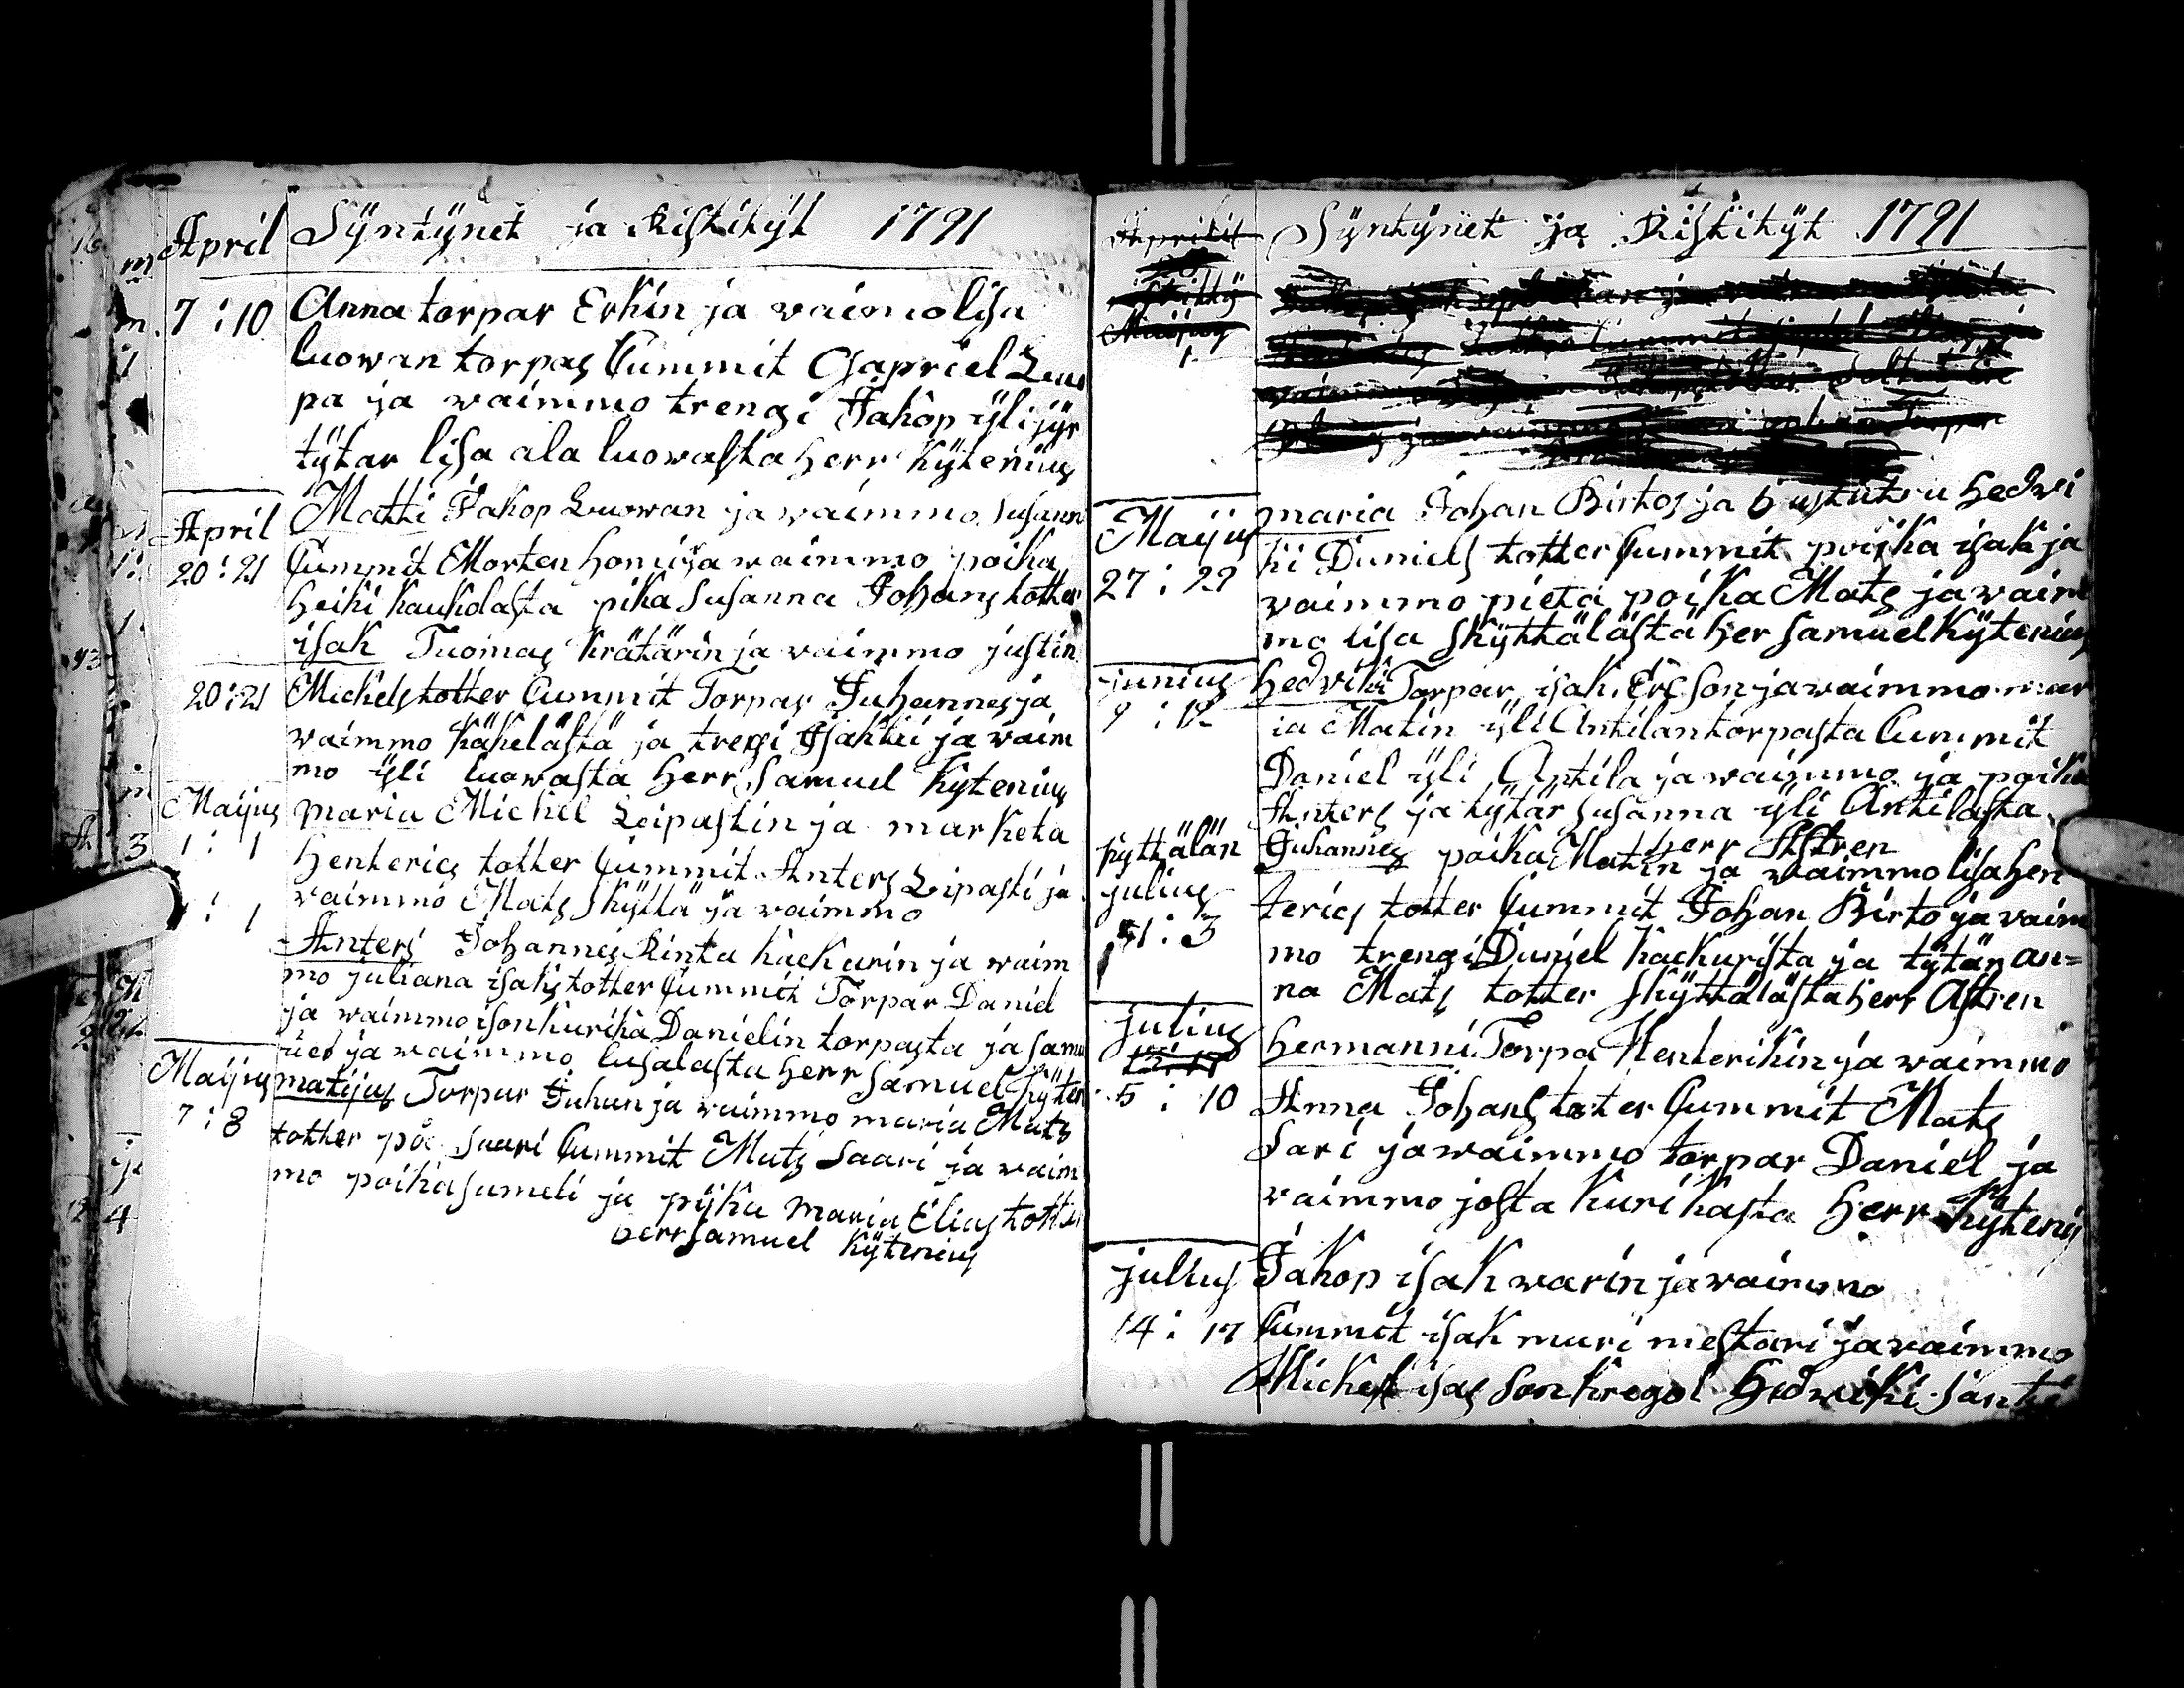 April Syntynet ja Kistityt 1791
7 : 10 Anna torpar Erkin ja vaimo lisa
luowan torpas Cummit Capriel Luu
pa ja waimmo trengi Jakop yli jyr
tytar lisa ala luowasta herr Kytenius
April Matti Jakop Luowan ja waimmo Susann
20 : 21 Cummit Morten honi ja waimmo poika
heiki kaukolasta pika Susanna Johans totter
isak Tuomas krätärin ja waimmo justin
20 : 21 Michels totter Cummit Torpar Juhannes ja
waimmo käkelästä ja trengi ja waim
mo yli luowasta herr Samuel Kytenius
Maijus maria Michel Leipastin ja marketa
1 : 1 henterics totter Cummit Anters Lipasti ja
waimmo Mats Skyttä ja waimmo
1 : 1 Anters Johannes Rinta kackurin ja waim
mo juliana isaks totter Cummit Torpar Daniel
ja waimmo ison kurika Danielin torpasta ja samu
uel ja waimmo lusalasta herr Samuel Kyten
Maijus matijus Torpar Juhan ja waimmo maria Mats
7 : 8 totter på Saari Cummit Mats Saari ja waim
mo poika sameli ja pijka maria Elias totter
herr Samuel Kytenius
Syntynet ja Kistityt 1791
Maijus maria Johan Birtos ja hedvi
27 : 29 ki Daniels totter Cummit poijka isak ja
waimmo pieta poika Mats ja waim
mo lisa Skyttälästä her Samuel Kytenius
junius hedviki Torpar isak Ericson ja waimmo mar
9 : 12 ia Matin yli Antilan torpasta Cummit
Daniel yli Antila ja waimmo ja poika
Anters ja tytär Susanna yli Antilasta
herr Astren
kyttälän Juhannes poika Matin ja waimmo lisa hen
julius terics totter Cummit Johan Birto ja vaim
1 : 3 mo trengi Daniel kackurista ja tytär an=
na Mats totter Skyttälästä herr Astren
julius hermanni Torpa Henterikin ja waimmo
5 : 10 Anna Johans toter Cummit Mats
Sari ja waimmo torpar Daniel ja
vaimmo josta kurikasta herr Kytenis
julius Jakop isak warin ja vaimmo
14 : 17 Cummit isak muri mestari ja vaimmo
Michel isac son kregol hedwiki Santi